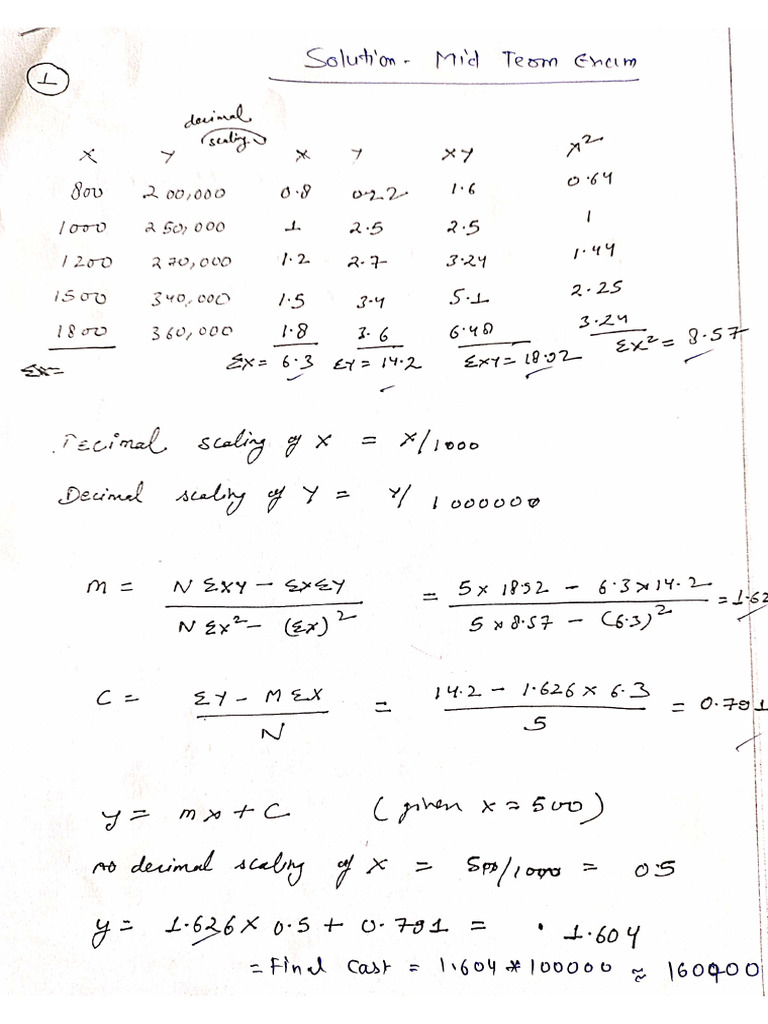 Solution - Mid Term Exam
1
decimal scaling
X Y X Y XY X²
800 200,000 0.8 022 1.6 0.64
1000 250,000 1 2.5 2.5 1
1200 270,000 1.2 2.7 3.24 1.44
1500 340,000 1.5 3.4 5.1 2.25
1800 360,000 1.8 3.6 6.48 3.24
ΣX= ΣX= 6.3 ΣY= 14.2 ΣXY= 18.92 ΣX² = 8.57
Decimal scaling of X = X/1000
Decimal scaling of Y = Y/1000000
M = (N ΣXY - ΣXΣY) / (N ΣX² - (ΣX)²) = (5 x 18.92 - 6.3 x 14.2) / (5 x 8.57 - (6.3)²) = 1.62
C = (ΣY - M ΣX) / N = (14.2 - 1.626 x 6.3) / 5 = 0.791
y = mx + C (given x = 500)
so decimal scaling of X = 500/1000 = 05
y = 1.626 x 0.5 + 0.791 = 1.604
= Final Cast = 1.604 * 100000 ≈ 160400